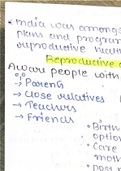 • India was amongst
plans and program
reproductive healt
Reproductive
Aware people with
→ Parents
→ Close relatives
→ Teachers
→ Friends
• Birth
option
• Care
moth
• Post